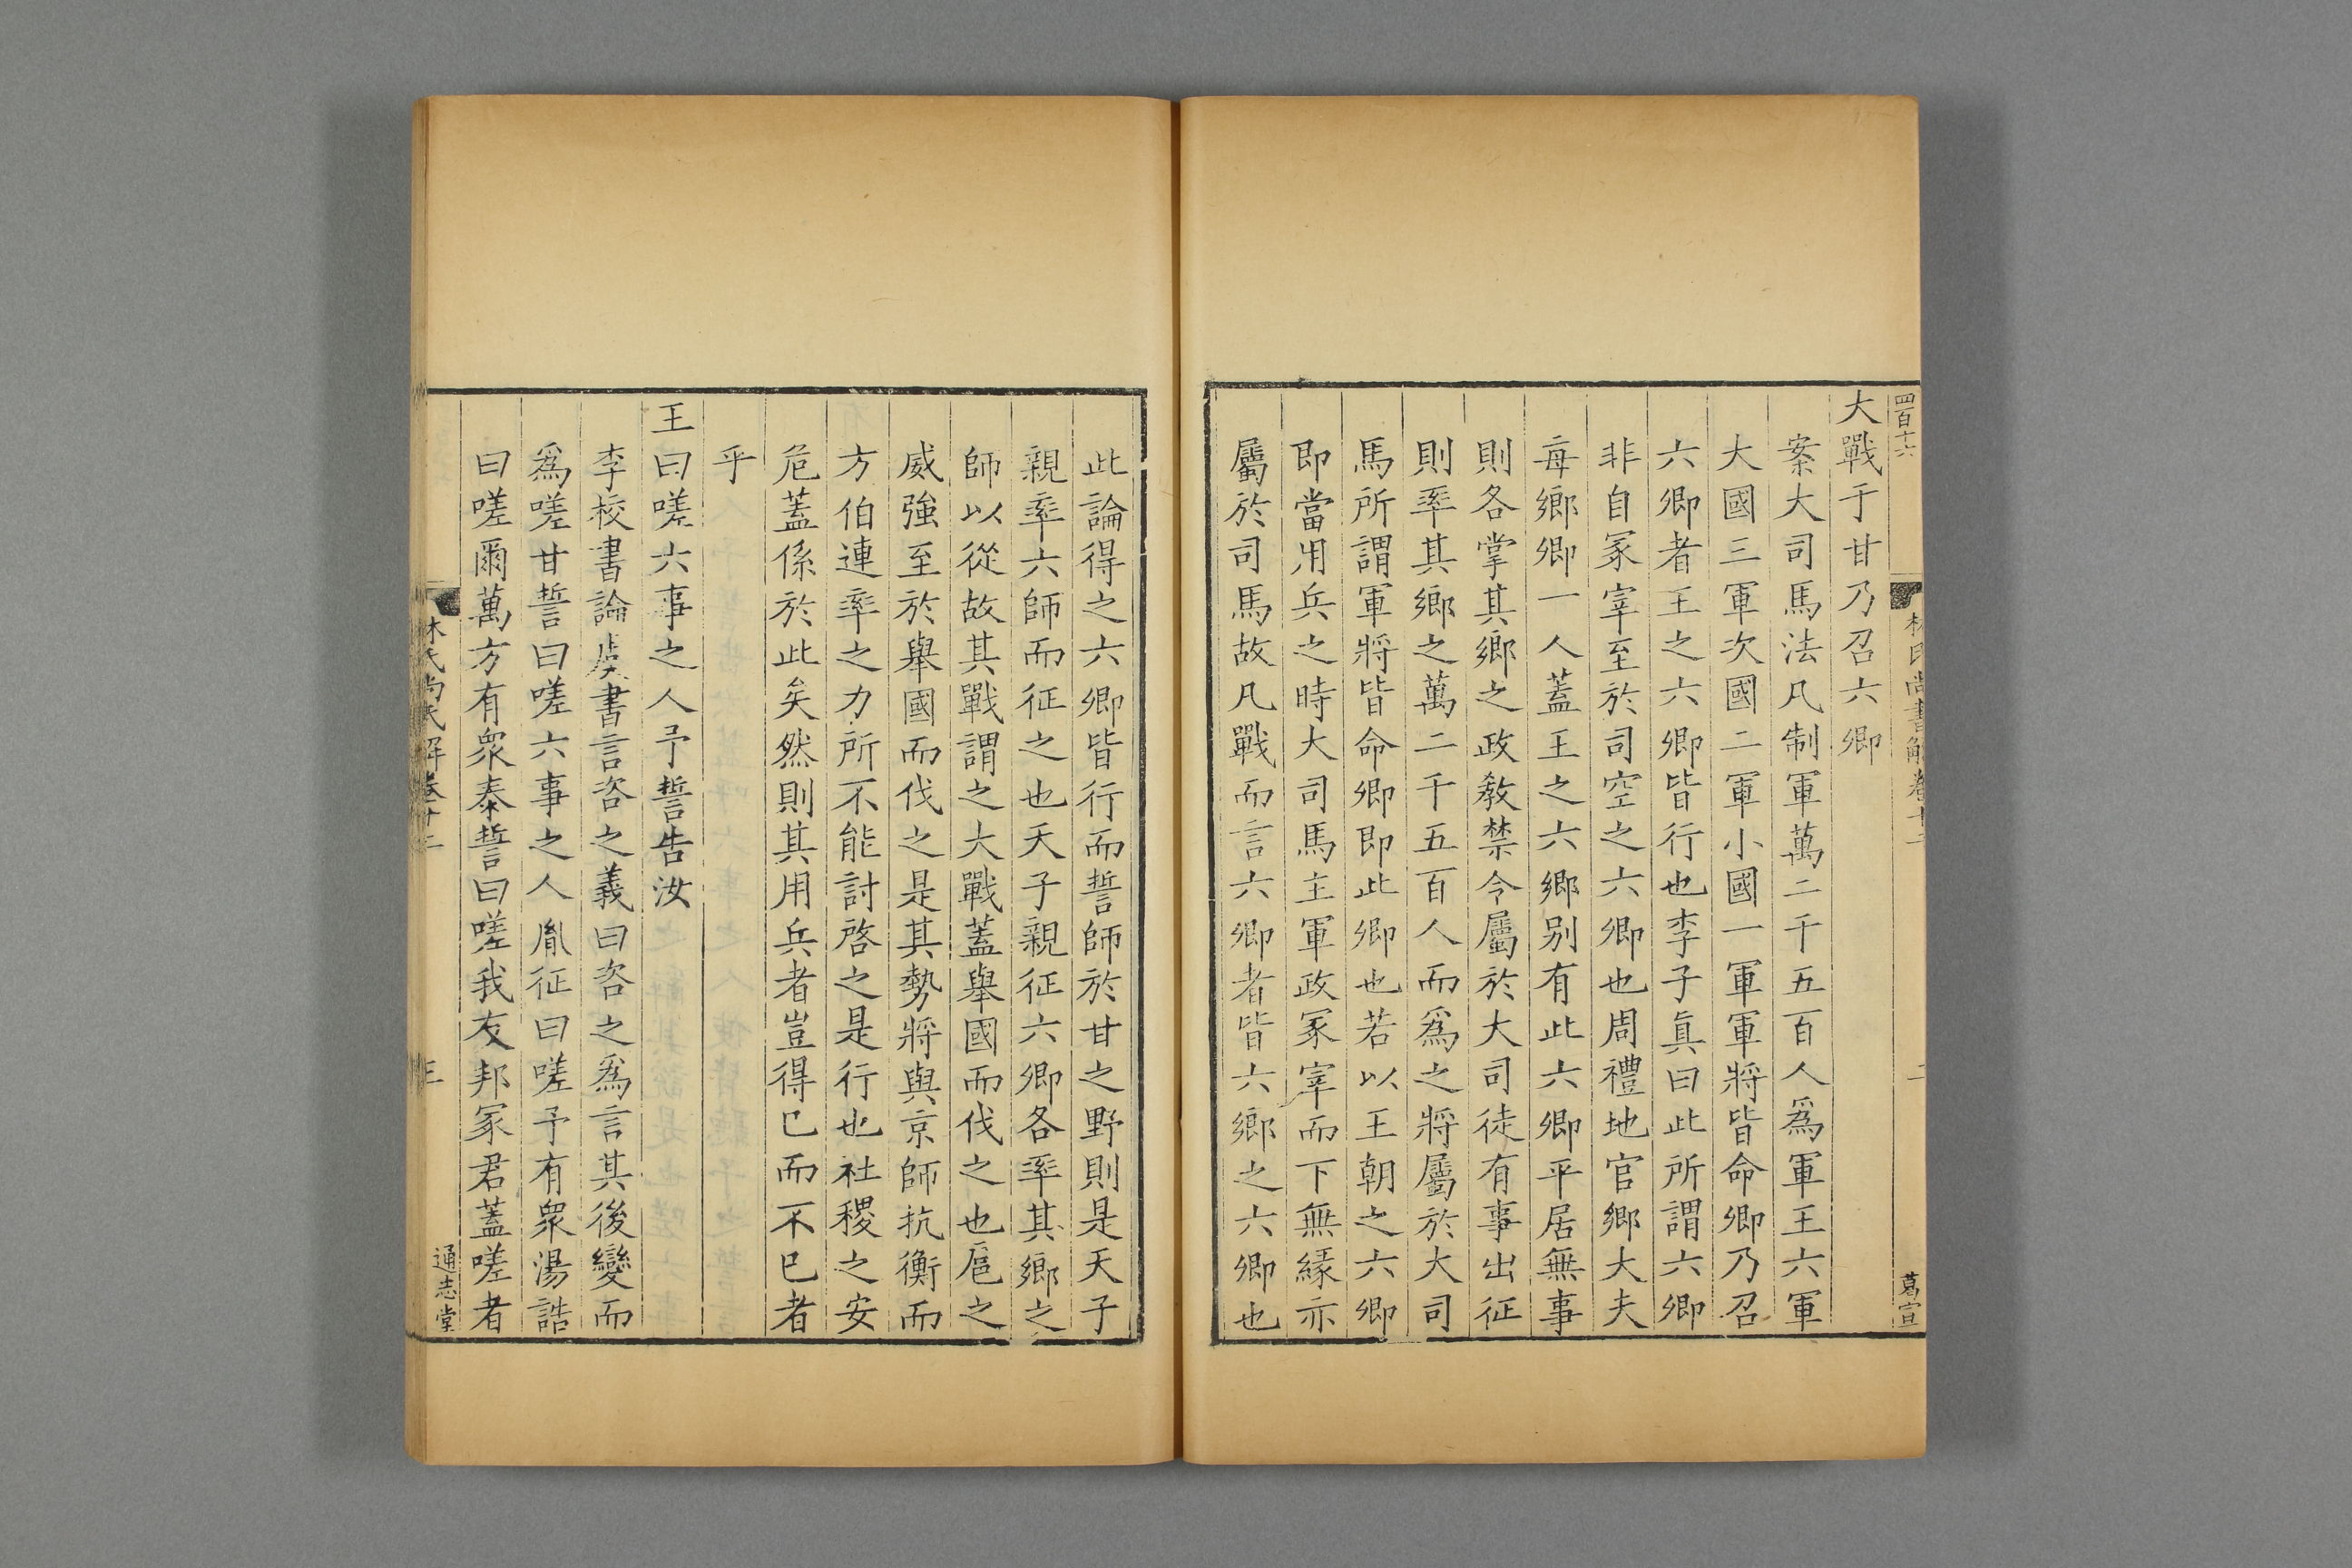 四百十六
大戰于甘乃召六卿
案大司馬法凡制軍萬二千五百人爲軍王六軍
大國三軍次國二軍小國一軍軍將皆命卿乃召
六卿者王之六卿皆行也李子眞曰此所謂六卿
非自冢宰至於司空之六卿也周禮地官鄉大夫
每鄉卿一人蓋王之六鄉别有此六卿平居無事
則各掌其鄉之政敎禁令屬於大司徒有事出征
則率其鄉之萬二千五百人而爲之將屬於大司
馬所謂軍將皆命卿即此卿也若以王朝之六卿
即當用兵之時大司馬主軍政冢宰而下無緣亦
屬於司馬故凡戰而言六卿者皆六鄉之六卿也
林氏尚書解卷十二
二
葛宣
此論得之六卿皆行而誓師於甘之野則是天子
親率六師而征之也天子親征六卿各率其鄉之
師以從故其戰謂之大戰蓋舉國而伐之也扈之
威強至於舉國而伐之是其勢將與京師抗衡而
方伯連率之力所不能討啓之是行也社稷之安
危蓋係於此矣然則其用兵者豈得已而不已者
乎
王曰嗟六事之人予誓告汝
李校書論虞書言咨之義曰咨之爲言其後變而
爲嗟甘誓曰嗟六事之人胤征曰嗟予有衆湯誥
曰嗟爾萬方有衆泰誓曰嗟我友邦冢君蓋嗟者
三
通志堂